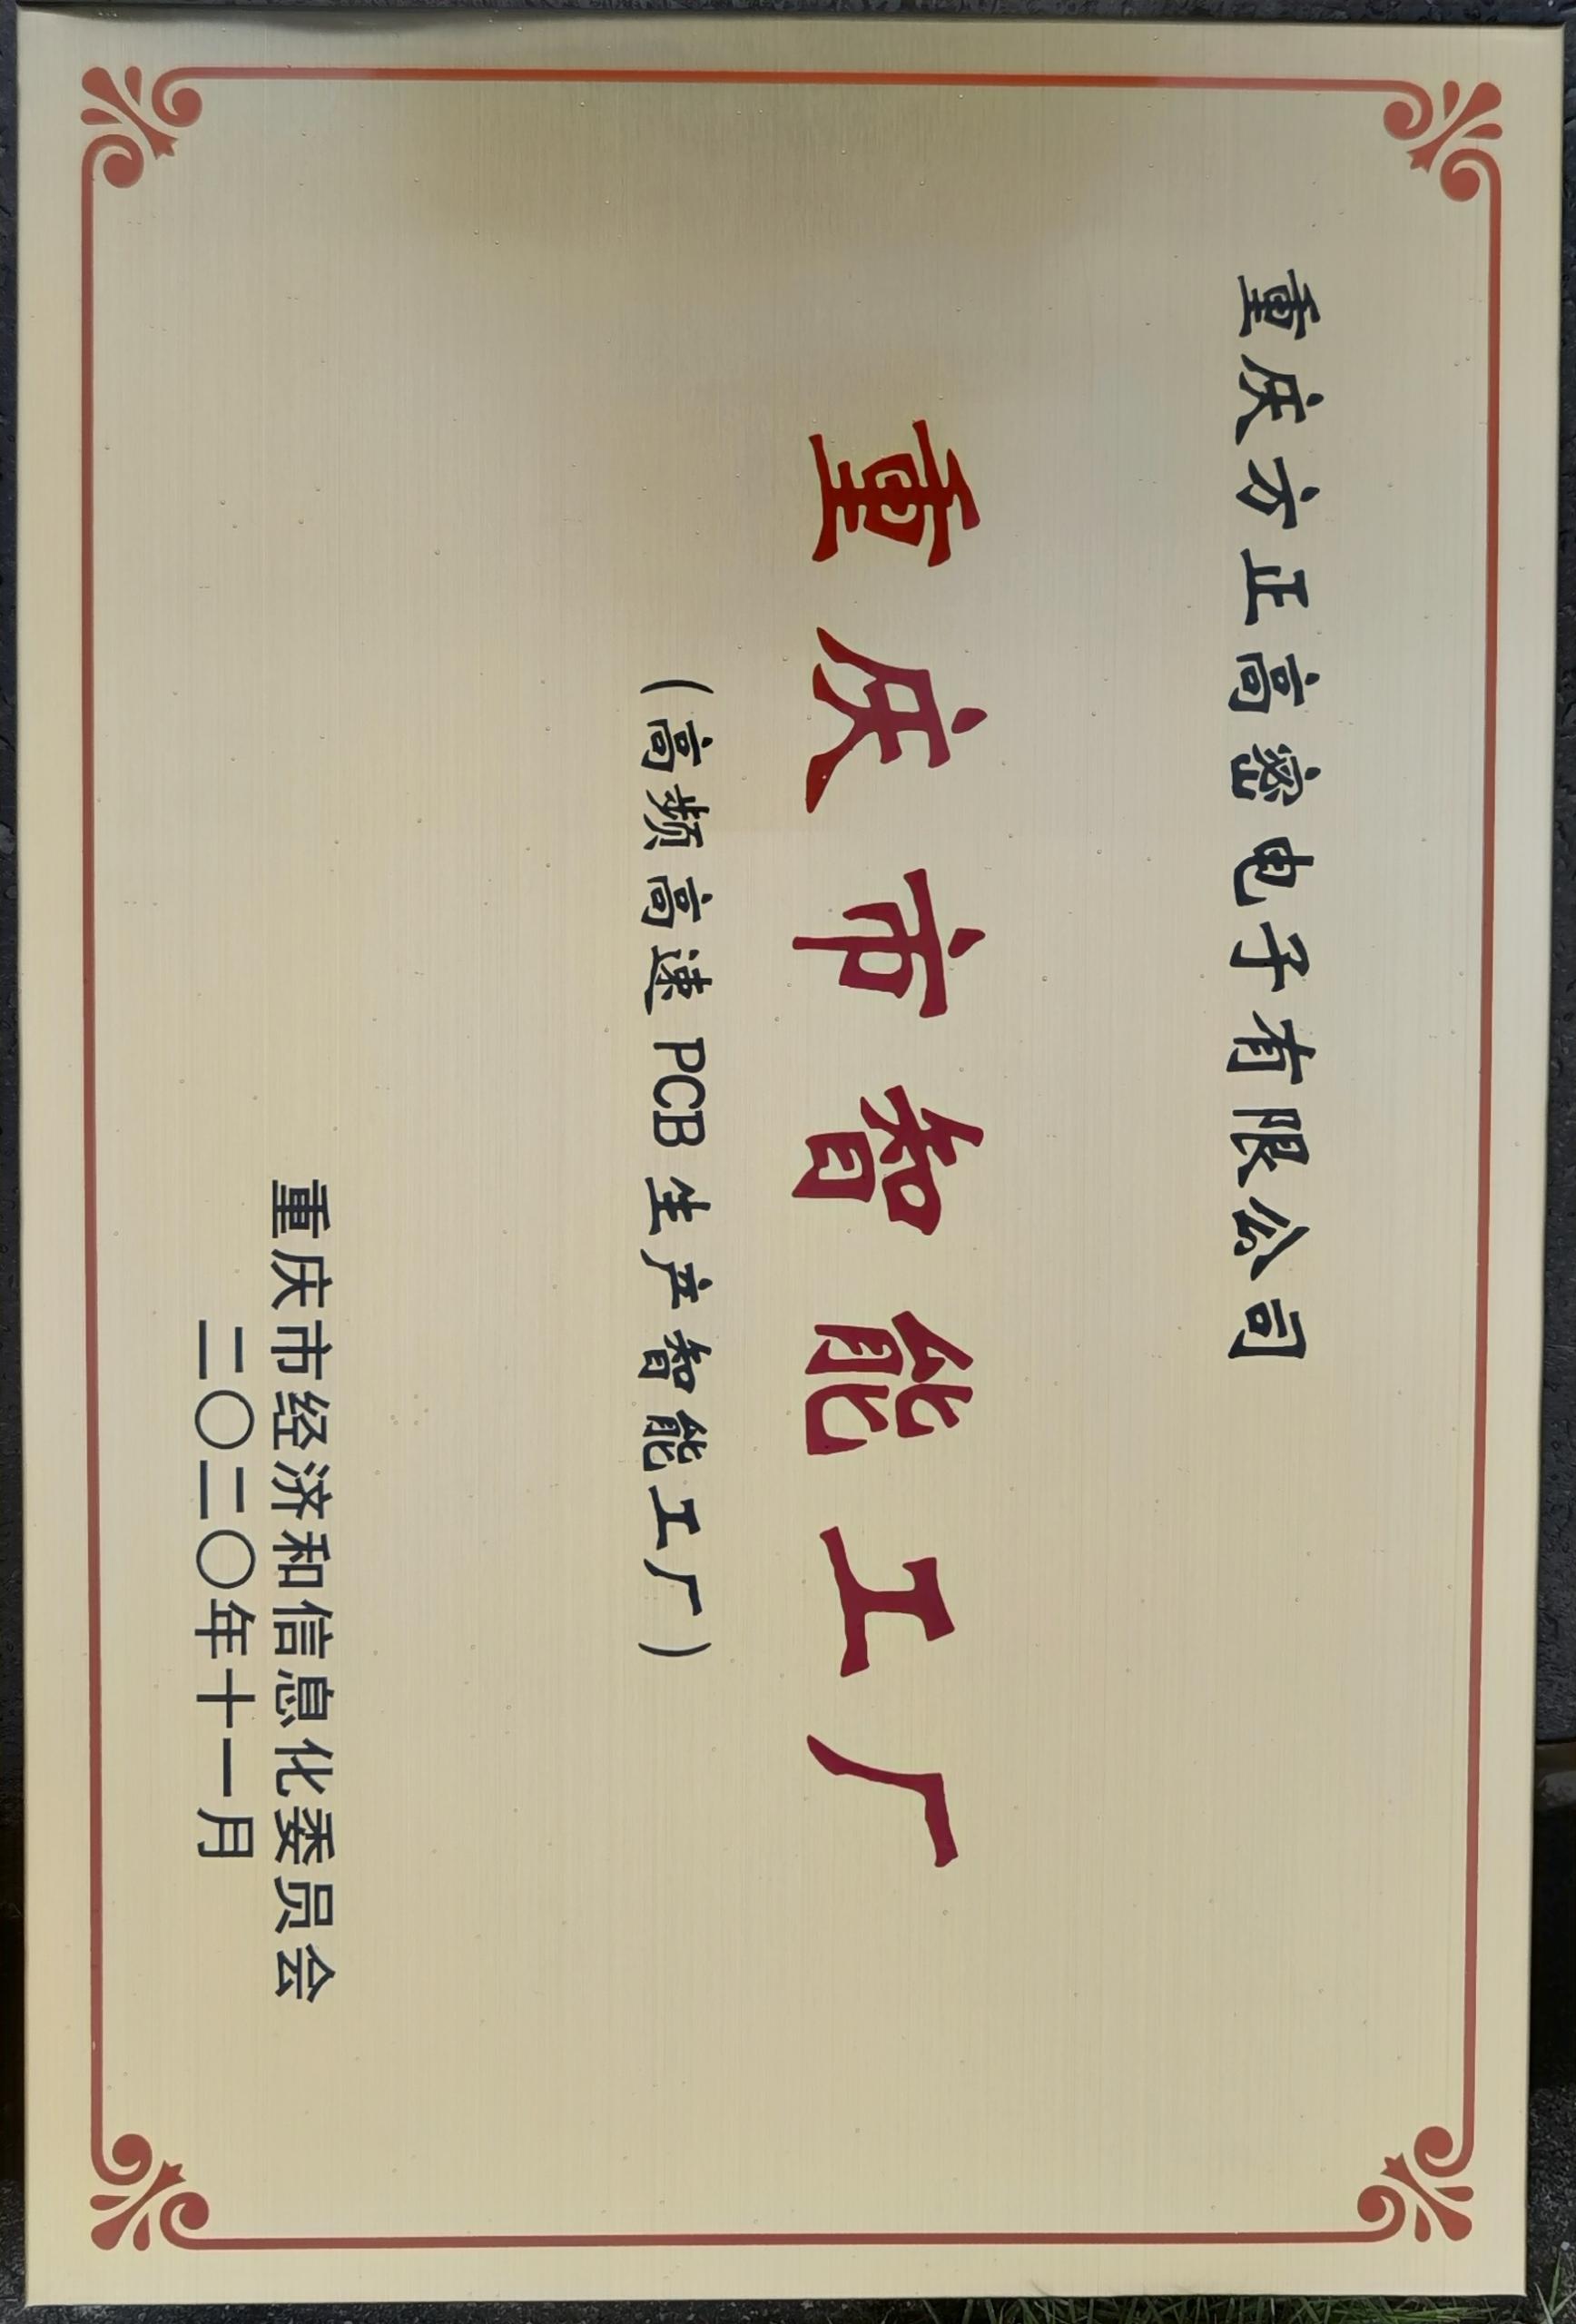 重庆方正高密电子有限公司
重庆市智能工厂
(高频高速PCB生产智能工厂)
重庆市经济和信息化委员会
二〇二〇年十一月